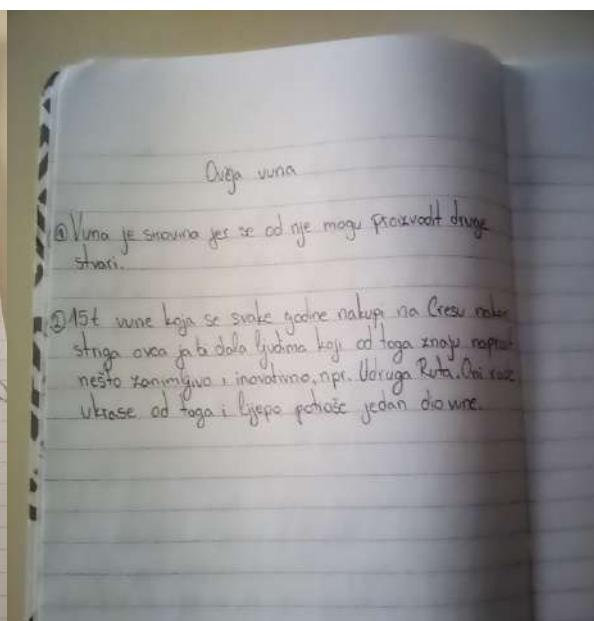 Ovčja vuna
① Vuna je sirovina jer se od nje mogu proizvodit druge
stvari.
② 15t vune koja se svake godine nakupi na Cresu nakon
striga ovca ja bi dala ljudima koji od toga znaju napravit
nešto zanimljivo i inovativno, npr. Udruga Ruta. Oni rade
ukrase od toga i lijepo potroše jedan dio vune.